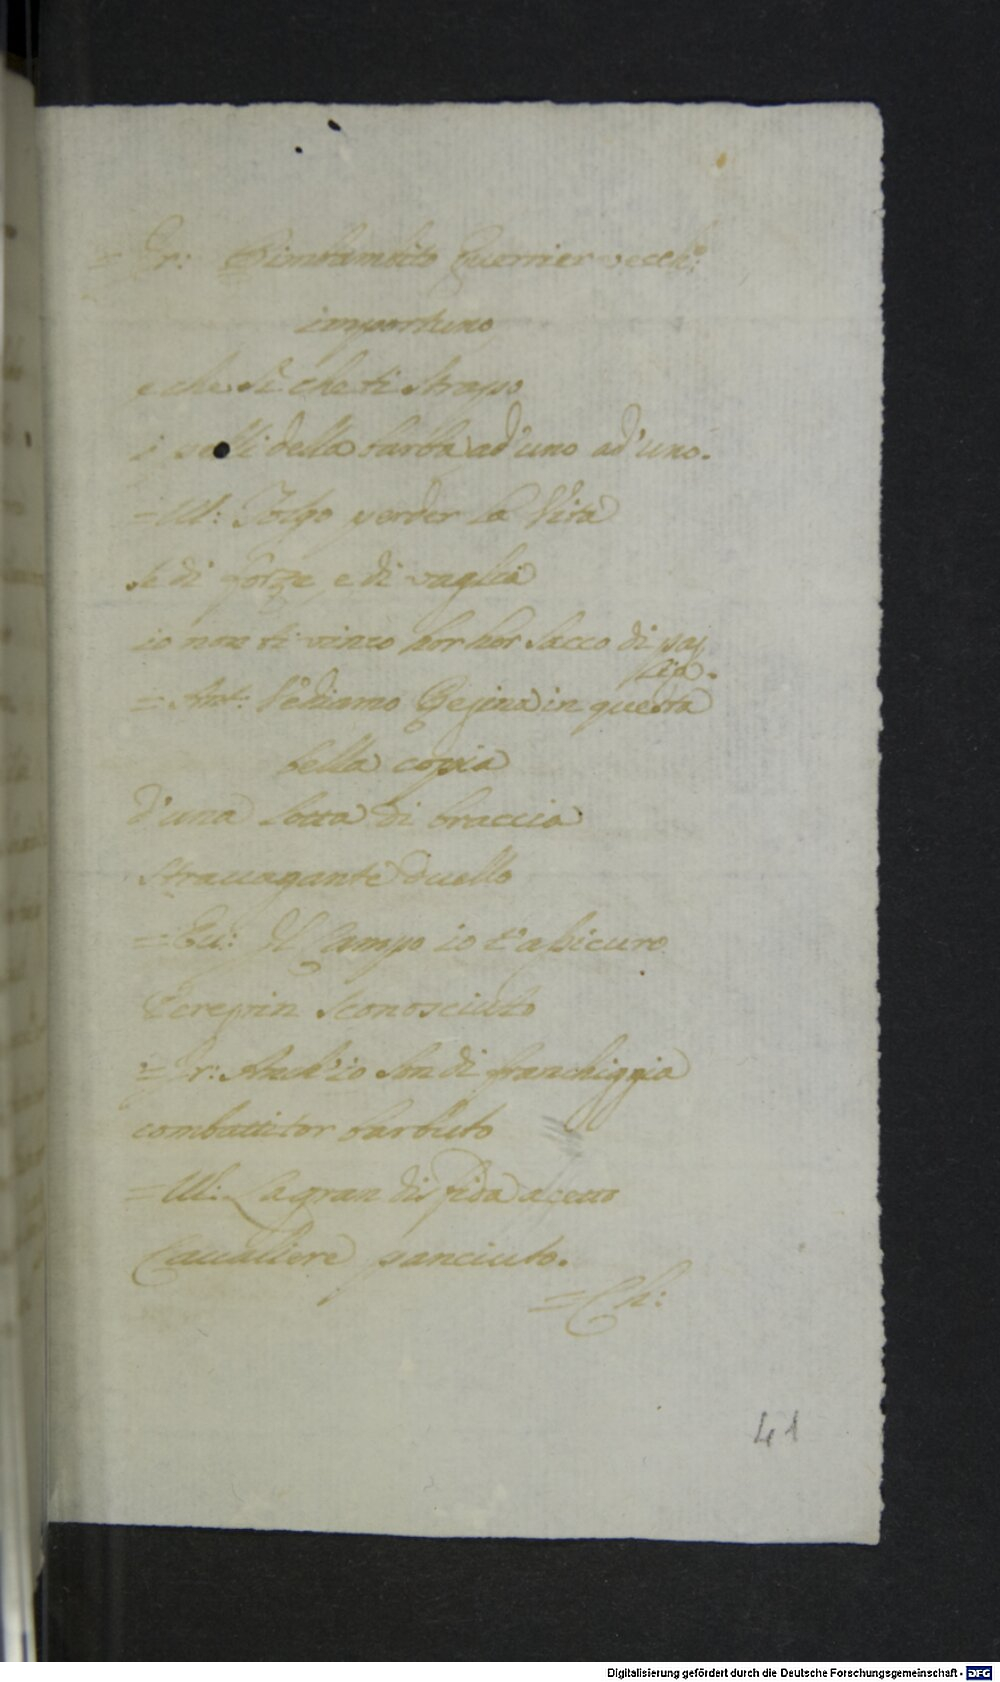 = Ir: Rimbambito Guerrier vecch:º
importuno,
e che sì che ti strapo
i pelli della barba ad'uno ad'uno.
= Ul: Tolgo perder la Vita
se di forze, e di vaglia
io non ti vinco hor hor sacco di pa,
lia.
= Ant: Vediamo Regina in questa
bella copia
d'una lotta di braccia
stravagante duello
= Eu: Il Campo io t'assicuro
Peregrin sconosciuto
= Ir: Anch'io son di franchiggia
combattitor barbuto
= Ul: La gran disfida accetto
Cavalliere panciuto.
= Ch:
41
Digitalisierung gefördert durch die Deutsche Forschungsgemeinschaft - DFG